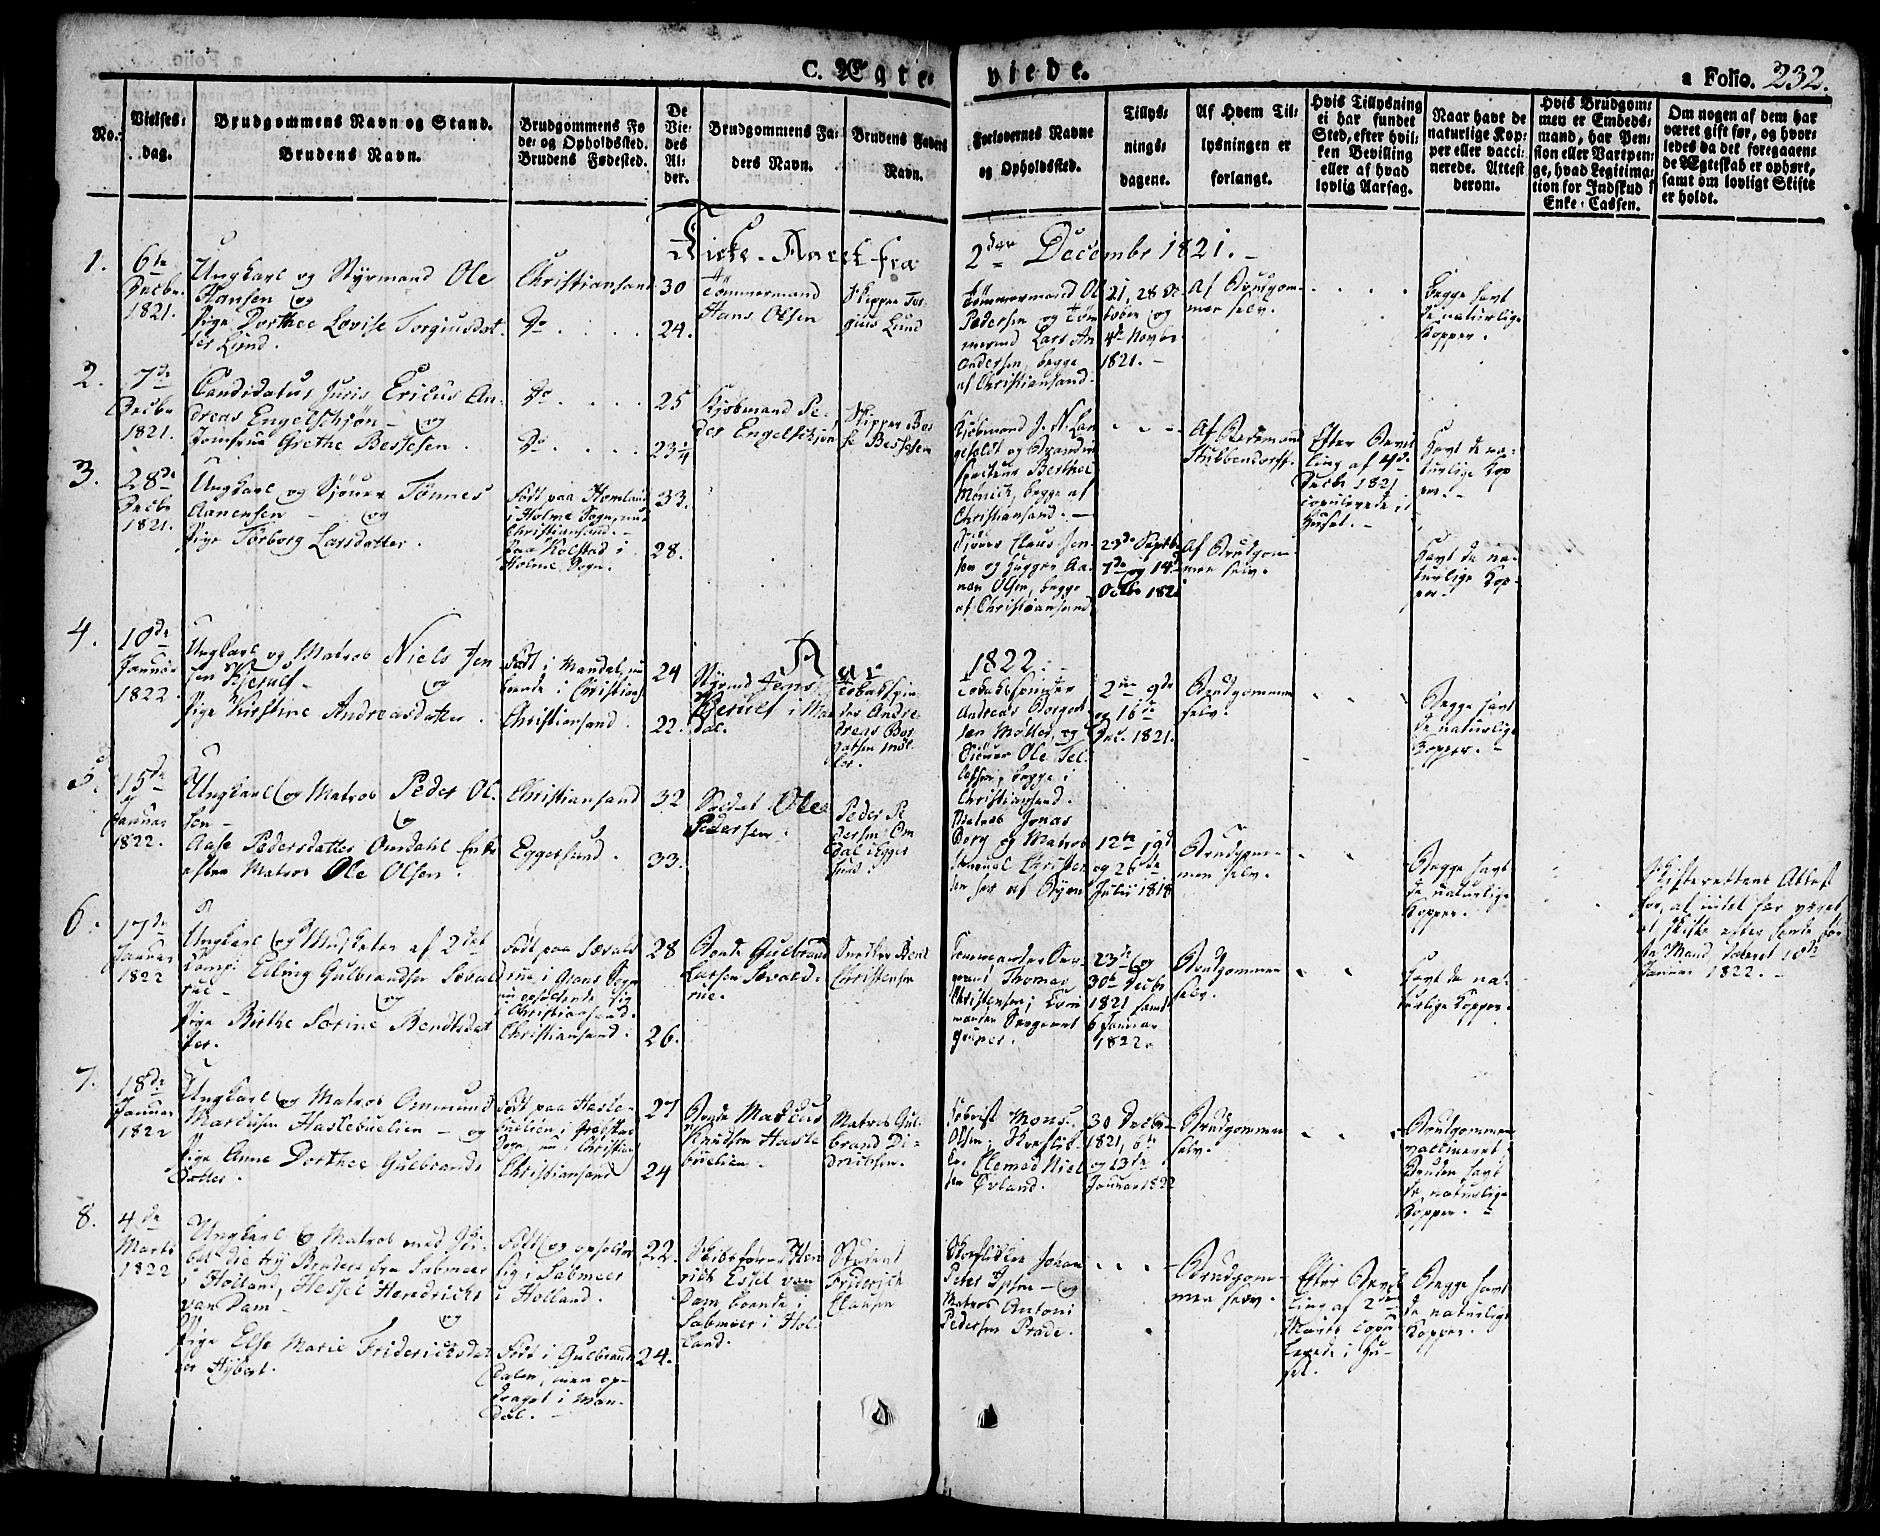 C. Ægte-
viede.
a Folio. 232.
No.
Vielses-
dag.
Brudgommens Navn og Stand.
Brudens Navn.
Brudgommens Fø-
de- og Opholdssted.
Brudens Fødested.
De
Vie-
des
Al-
der.
Brudgommens Fa-
ders Navn.
Brudens Faders
Navn.
Forlovernes Navne
og Opholdssted.
Tillys-
nings-
dagene.
Af Hvem Til-
lysningen er
forlangt.
Hvis Tillysning
ei har fundet
Sted, efter hvil-
ken Bevilling
eller af hvad
lovlig Aarsag.
Naar havt de
naturlige Kop-
per eller vacci-
nerede. Attest
derom.
Hvis Brudgom-
men er Embeds-
mand, har Pen-
sion eller Vartpen-
ge, hvad Legitima-
tion for Indskud i
Enke-Cassen.
Om nogen af dem har
været gift før, og hvor-
ledes da det foregaaen-
de Ægteskab er ophørt,
samt om lovligt Skifte
er holdt.
Kirke-Aaret fra
2den December 1821.
1.
6te
Decbr.
1821.
Ungkarl og Styrmand Ole
Hansen og
Pige Dorthee Lovise Torgiusdat-
ter Lund.
Christiansand
Do
30
24.
Tømmermand
Hans Olsen
Skipper Tor-
gius Lund
Tømmermand Ol
Pedersen og Tøm
mermd Lars An
Andersen, begge
af Christiansand.
21, 28 Oc
tober og
4de Novbr
1821.
Af Brudgom-
men selv.
Begge havt
de naturlige
Kopper.
2.
7de
Decbr
1821.
Candidatus Juris Ericus An-
dreas Engelschjøn og
Jomfrue Grethe Bessesen.
Do
Do
25
23¼
Kjøbmand Pe-
der Engelschjøn
Skipper Bes-
se Bessesen
Kjøbmand J. N. Lan
gefeldt og Brandin
specteur Berthel
Mönich, begge af
Christiansand.
Af Kjøbmand
Stubbendorff.
Efter Bevil
ling af 4de
Decbr 1821
copulerede i
Huset.
Havt de na-
turlige Kop
per.
3.
28de
Decbr
1821.
Ungkarl og Sjøuer Tønnes
Aanensen og
Pige Torborg Larsdatter.
Født paa Homland
i Holme Sogn, nu
Christiansand.
Paa Kolstad i
Holme Sogn.
33.
28.
Sjøuer Claus Jen-
sen og Hugger Aa-
nen Olsen, begge
af Christiansand
23de Septbr
7de og 14de
Octbr 1821
Af Brudgom-
men selv.
Havt de na-
turlige Kop-
per.
Aar
1822.
4.
10de
Januar
1822.
Ungkarl og Matros Niels Jen
sen Kjerulf og
Pige Kirstine Andreasdatter.
Født i Mandal, nu
boende i Christians
Christiansand.
24
22.
Styrmd Jens
Kjerulf i Man
dal.
Tobakspin
der Andre
dreas Bor
gersen Møl
ler.
Tobakspinder
Andreas Borger
sen Møller, og
Sjöuer Ole Tel
lefsen, begge i
Christiansand.
2den 9de
og 16de
Dec. 1821.
Brudgommen
selv.
Begge havt
de naturlige
Kopper.
5.
15de
Januar
1822.
Ungkarl og Matros Peder Ol-
sen og
Aase Pedersdatter Omdahl Enke
efter Matros Ole Olsen.
Christiansand
Eggersund.
32
33.
Soldat Ole
Pedersen.
Peder Pe
dersen Om
dal i Egger
sund.
Matros Jonas
Berg og Matros
Samuel Christen
sen her af Byen
12te 19de
og 26de
Julii 1818
Brudgom-
men selv.
Begge havt
de naturlige
Kopper.
Skifterettens Attest
for, at intet har været
at skifte efter hende før
ste Mand, dateret 10de
Januar 1822.
6.
17de
Januar
1822
Ungkarl og Musketer af 2det
Comp: Elling Gulbrandsen Sevald
rue og
Pige Birthe Sorine Bendtsdat
ter.
Født paa Sevald
rue i Grans Sogn
nu opholdende sig
i Christiansand.
Christiansand.
28
26.
Bonde Gulbrand
Larsen Sevald-
rue.
Snedker Bend
Christensen
Commander Ser-
geant Thomas
Christensen, Com
mander Sergeant
23de og
30te Decbr
1821 samt
6 Januar
1822.
Brudgommen
selv.
Havt de na-
turlige Kopper.
7.
18de
Januar
1822
Ungkarl og Matros Ommund
Marcusen Haslebuelien og
Pige Anne Dorthee Gulbrands
datter.
Født paa Hasle-
buelien i
Sogn nu i Christian
Christiansand
27
24
Bonde Marcus
Knudsen Hasle
buelien.
Matros Gul-
brand Di-
drichsen.
Mons.
Olsen,
Clemed Niel
sen Øvland.
30 Decbr
1821, 6te
og 13de
Januar 1822
Brudgommen
selv.
Brudgommen
vaccineret,
Bruden havt
de naturlige
Kopper.
8.
4de
Marts
1822
Ungkarl og Matros med
Brudens fra Sabmeer
i Holland, Hessel Hendrichs
van Dam og
Pige Else Marie Friderichsdat
ter Hybert.
Født og opholder
sig i Sabmeer
i Holland.
Født i Gulbrands
dalen, men op-
draget i Man-
dal.
22.
24.
Skibsfører Hen
rich Essel van
Dam, boende i
Sabmeer i Hol-
land.
Student
Friderich
Clausen
Johan
Peter Ipsen og
Matros Antoni
Pedersen Prade.
Brudgom-
men selv.
Efter Bevil
ling af 2den
Marts copu
lerede i Hu-
set.
Begge havt
de naturlige
Kopper.